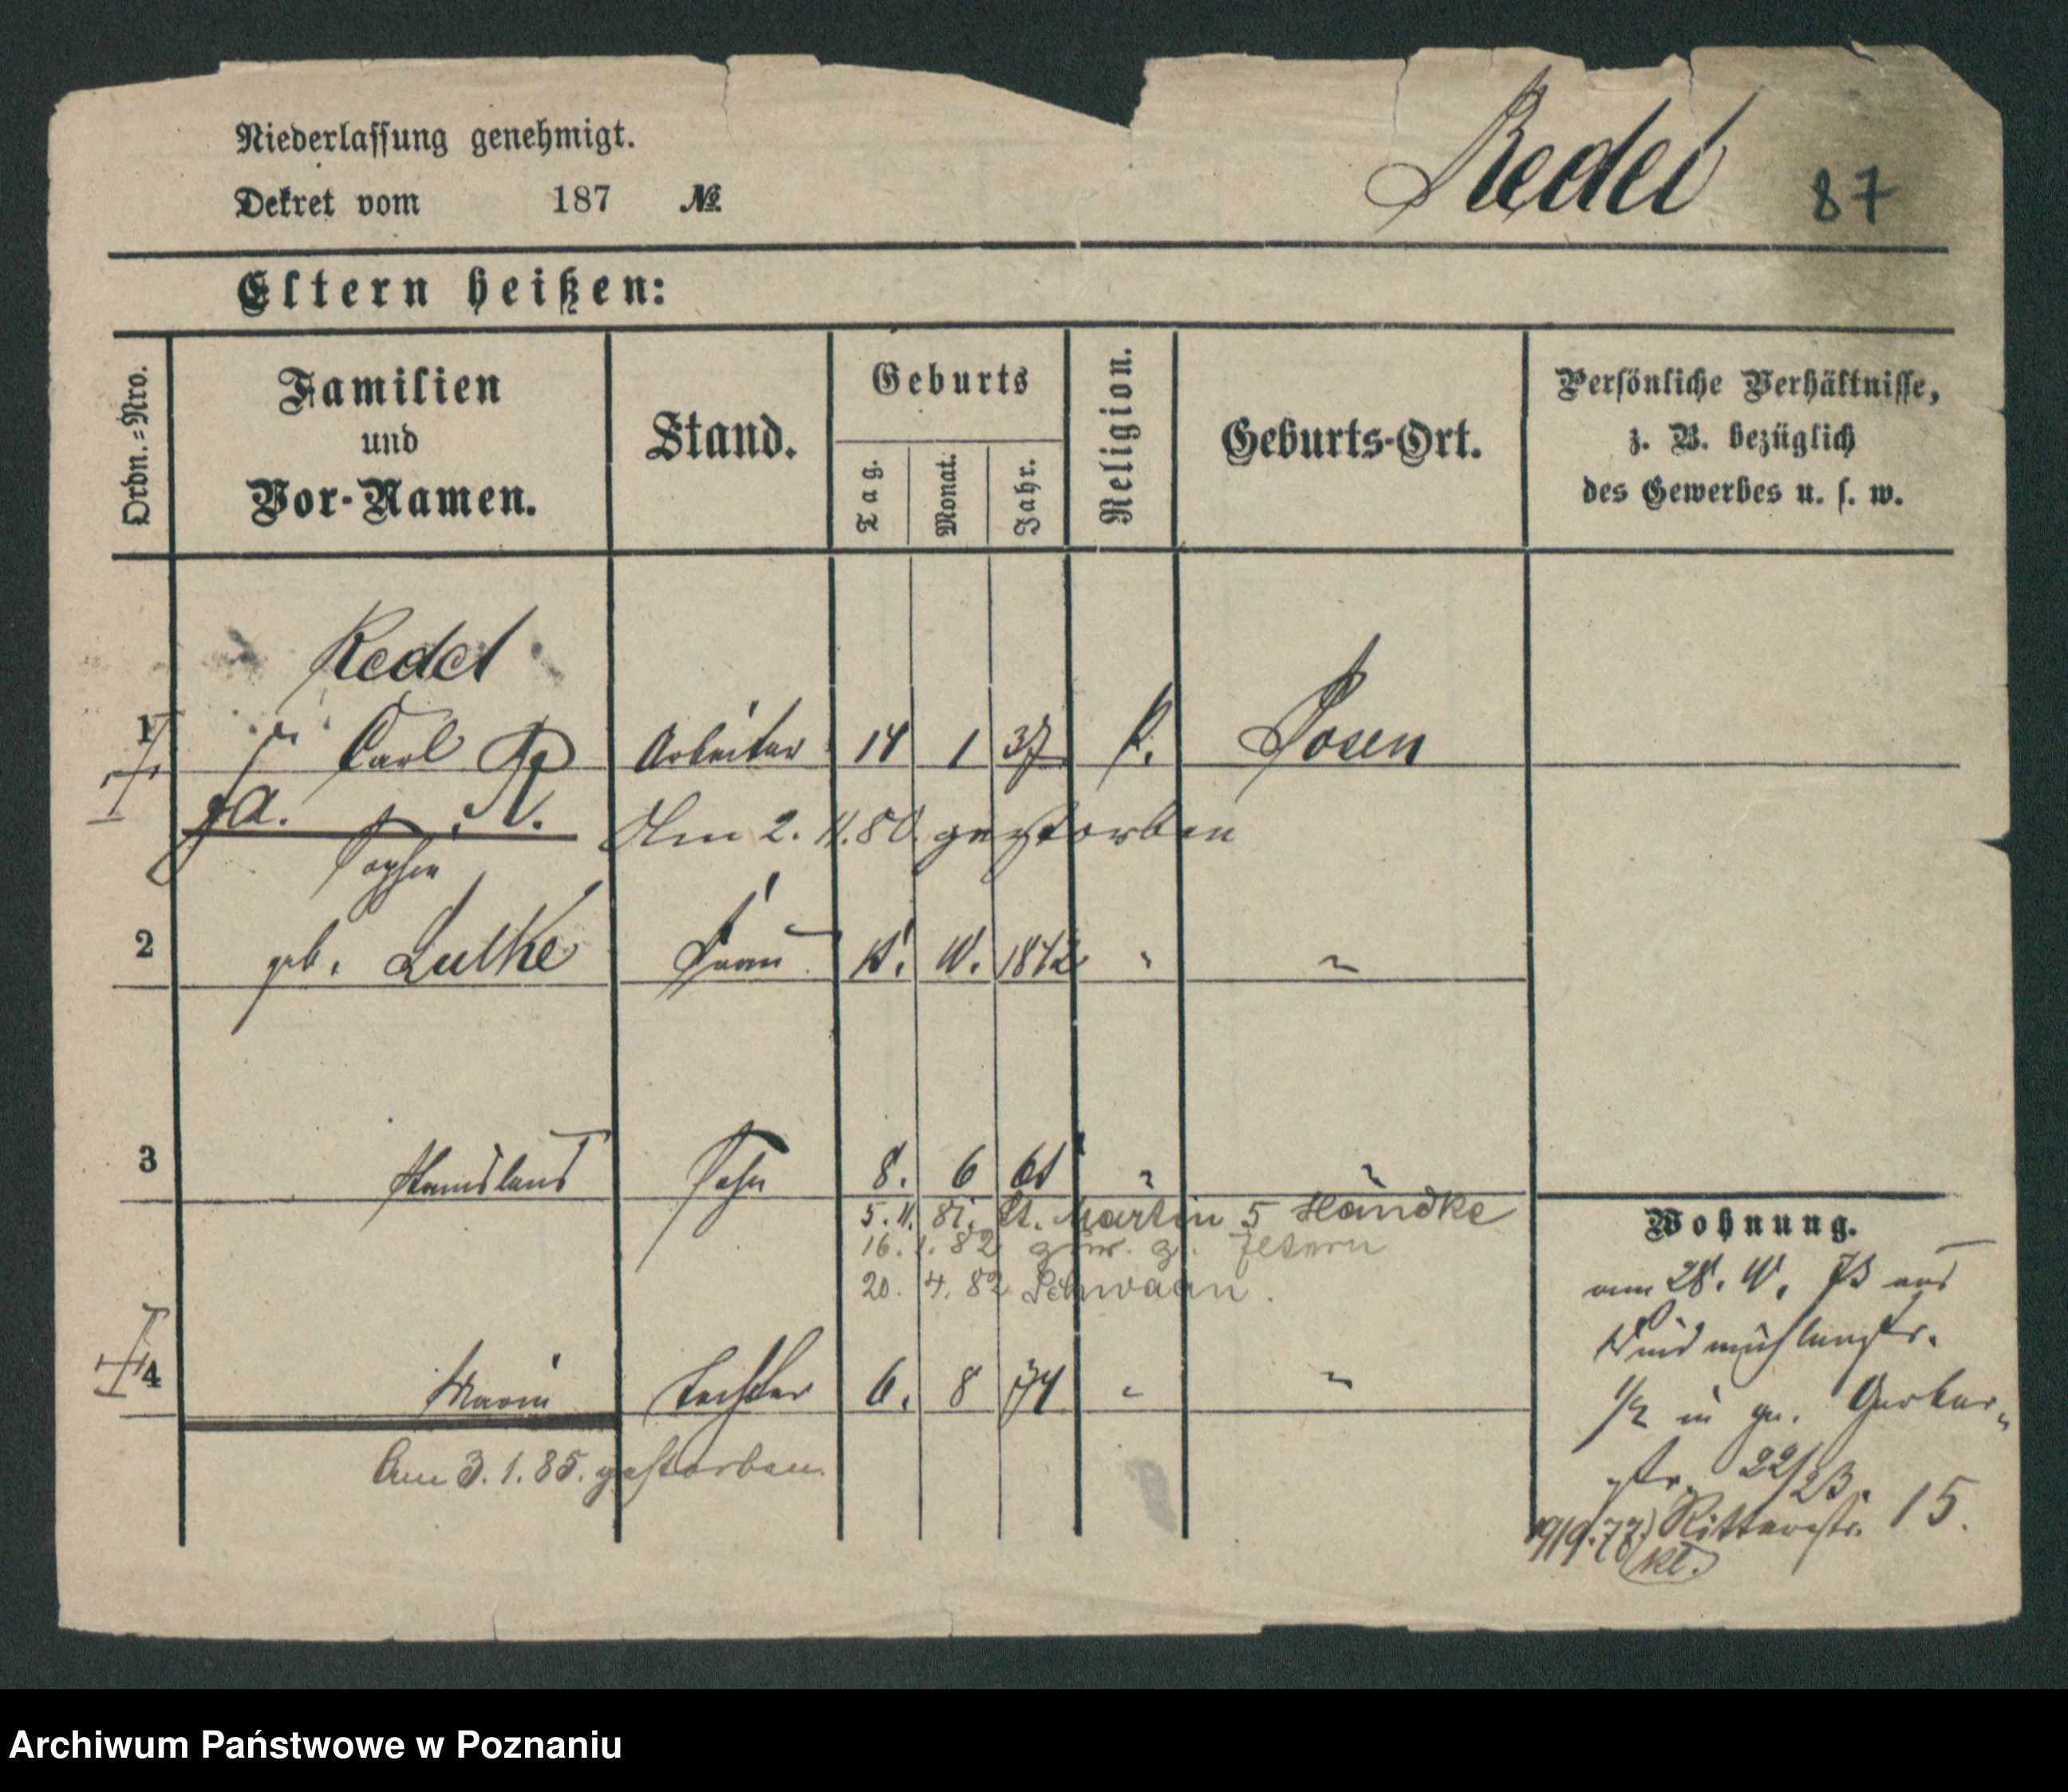 Niederlassung genehmigt.
Dekret vom 187 №
Redel 87
Eltern heißen:
Ordn.=Nro.
Familien
und
Vor-Namen.
Stand.
Geburts
Tag.
Monat.
Jahr.
Religion.
Geburts-Ort.
Persönliche Verhältnisse,
z. B. bezüglich
des Gewerbes u. s. w.
Redel
1 Carl Arbeiter 14 1 37 k. Posen
Am 2. 11. 80. gestorben
Sophie
2 geb. Lutke Frau 1842 "
3 Stanislaus Sohn 8. 6 61 "
5. 11. 81. St. Martin 5 Händke
16. 1. 82
20. 4. 82 Schwaan.
4 Marie Tochter 6. 8 74 "
Am 3. 1. 85. gestorben.
Wohnung.
am 28. aus
Windmühlenstr.
1/2 in gr. Gerber-
str. 22/23.
19/9. 77. Ritterstr. 15.
kl.
Archiwum Państwowe w Poznaniu